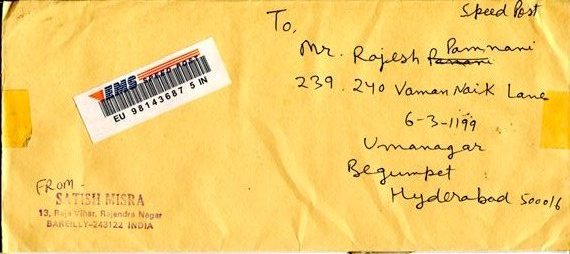 Speed Post
To,
Mr. Rajesh Pamnani
239. 240 Vaman Naik Lane
6-3-1199
Umanagar
Begumpet
Hyderabad 500016
EMS SPEED POST
EU 98143687 5 IN
FROM -
SATISH MISRA
13, Raja Vihar, Rajendra Nagar
BAREILLY-243122 INDIA